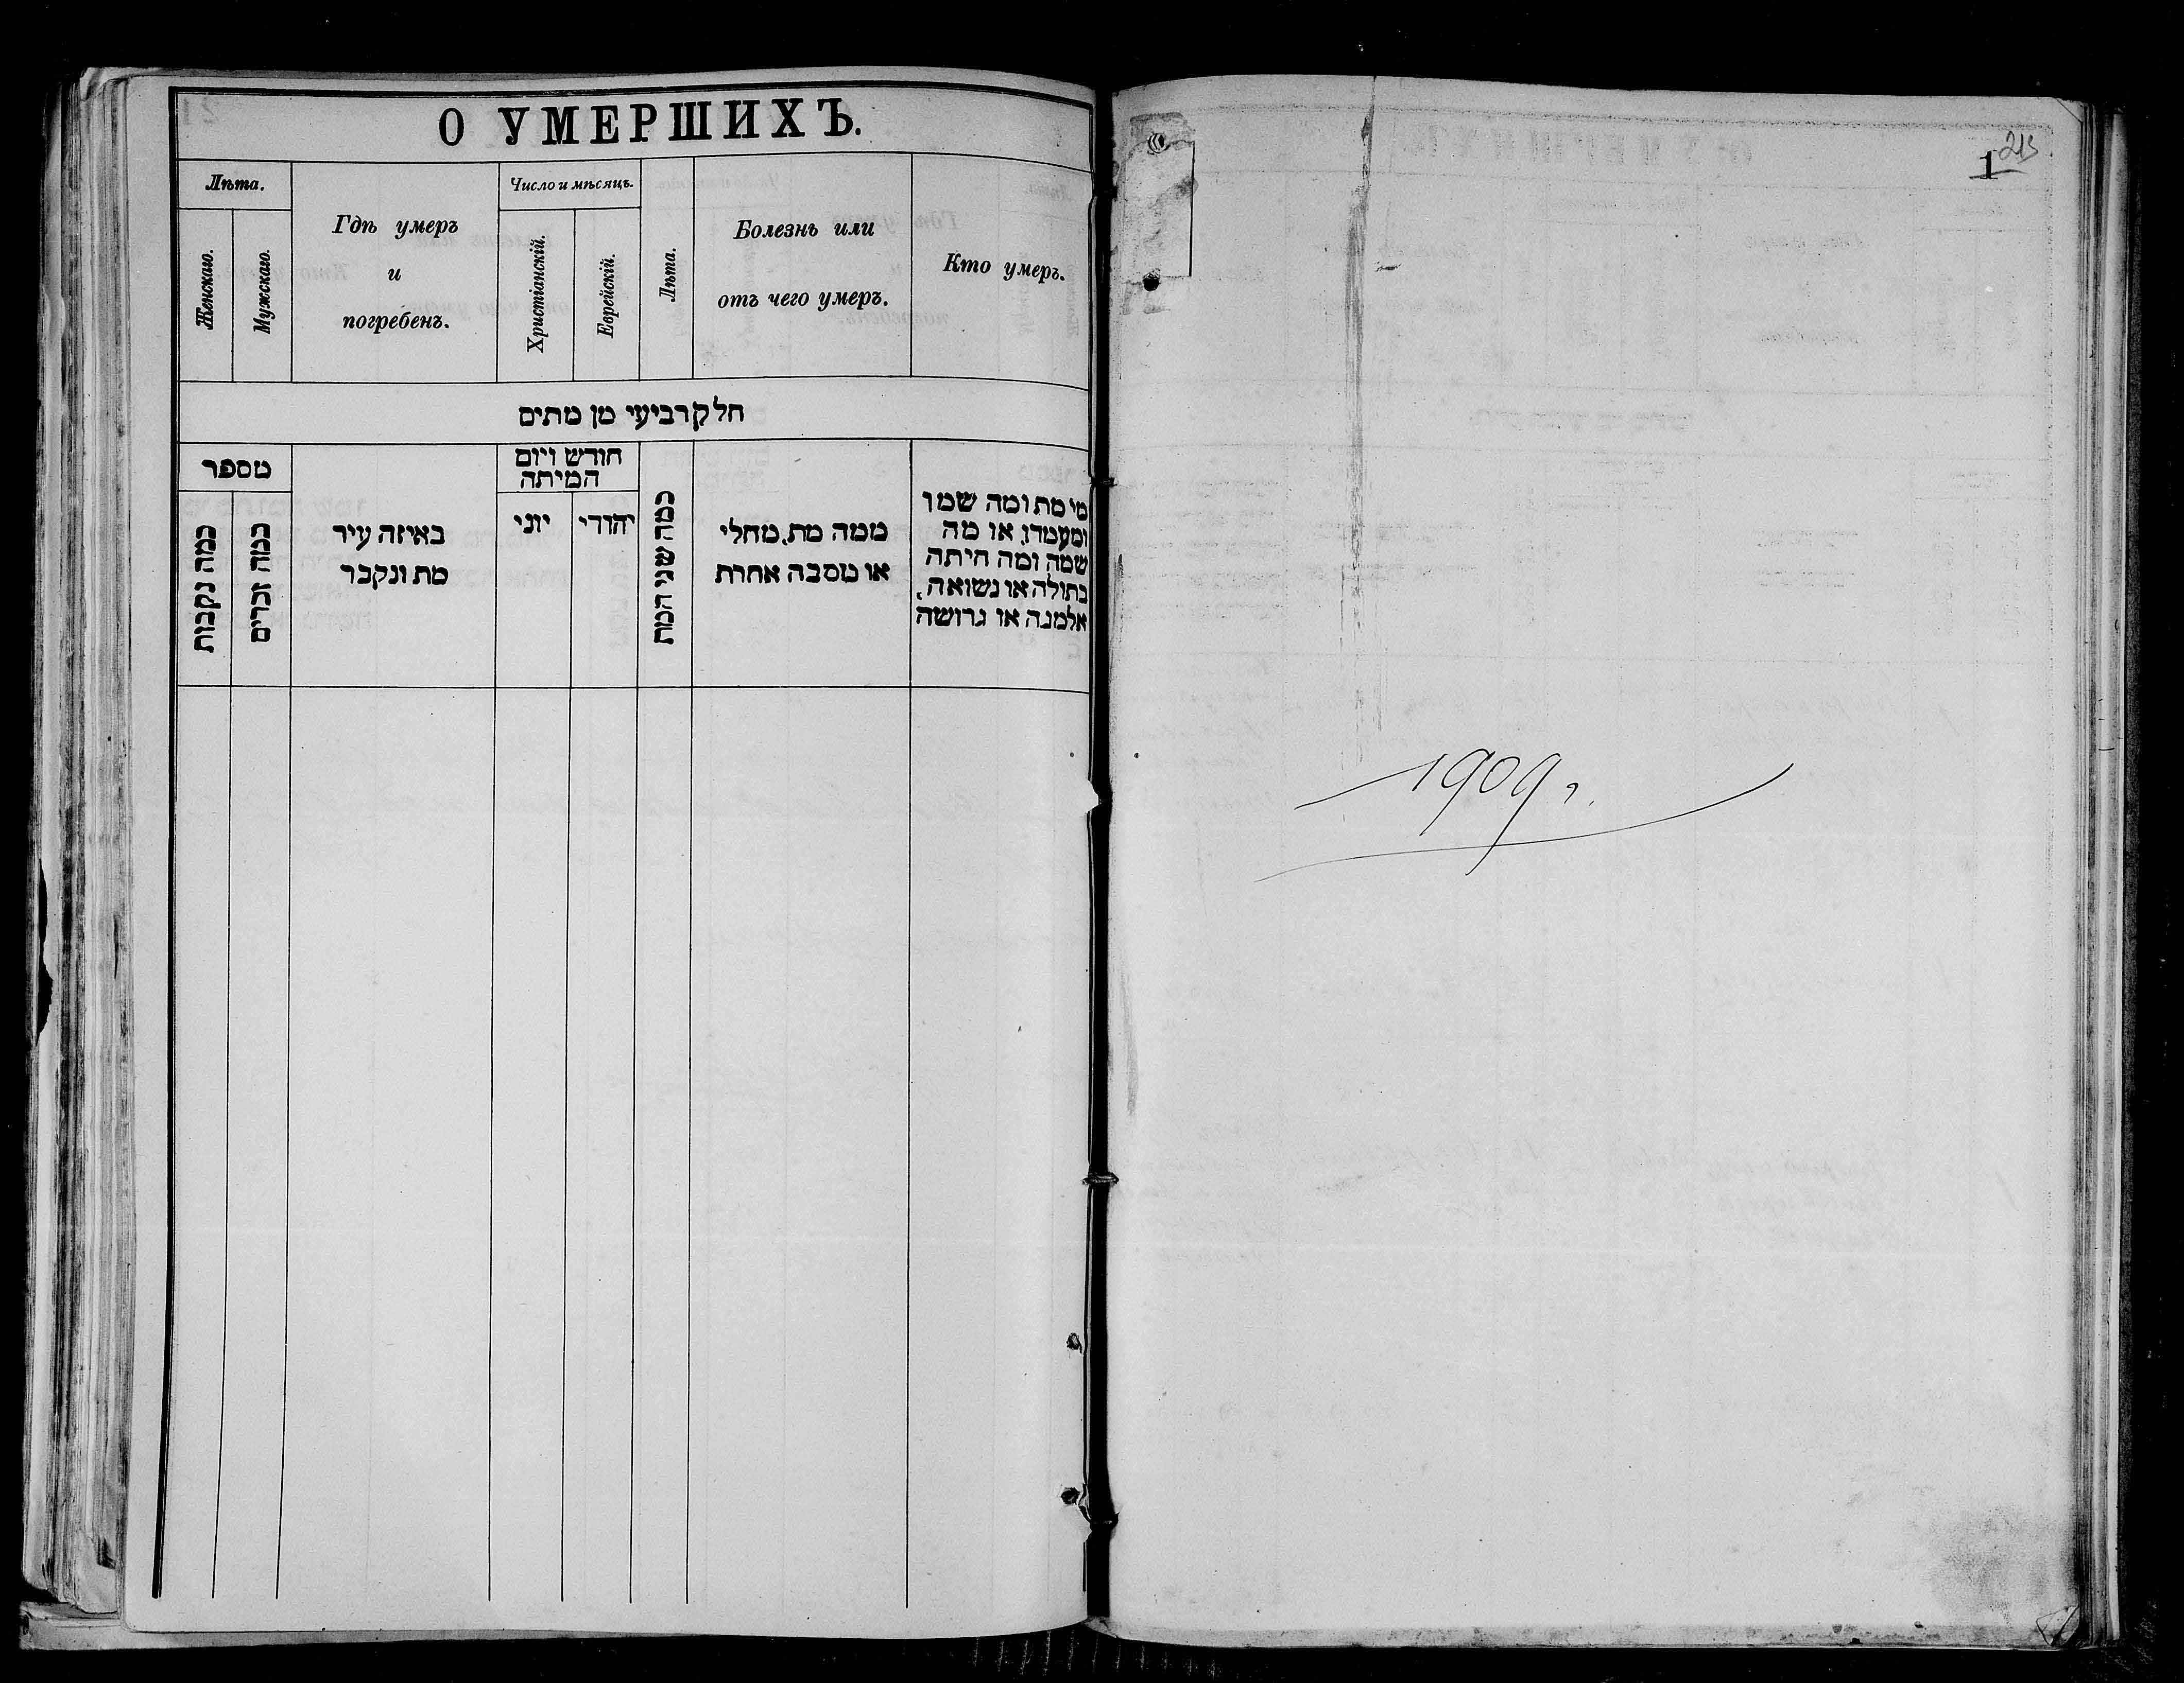 О УМЕРШИХЪ.
Лѣта.
Женскаго.
Мужскаго.
Гдѣ умеръ
и
погребенъ.
Число и мѣсяцъ.
Христіанскій.
Еврейскій.
Лѣта.
Болезнь или
отъ чего умеръ.
Кто умеръ.
חלק רביעי מן מתים
מי מת ומה שמו
ומעמדו, או מה
שמה ומה היתה
בתולה או נשואה,
אלמנה או גרושה
ממה מת, מחלי
או מסבה אחרת
כמה שני המת
חודש ויום
המיתה
יהודי
יוני
באיזה עיר
מת ונקבר
מספר
כמה זכרים
כמה נקבות
213
1
1909 г.